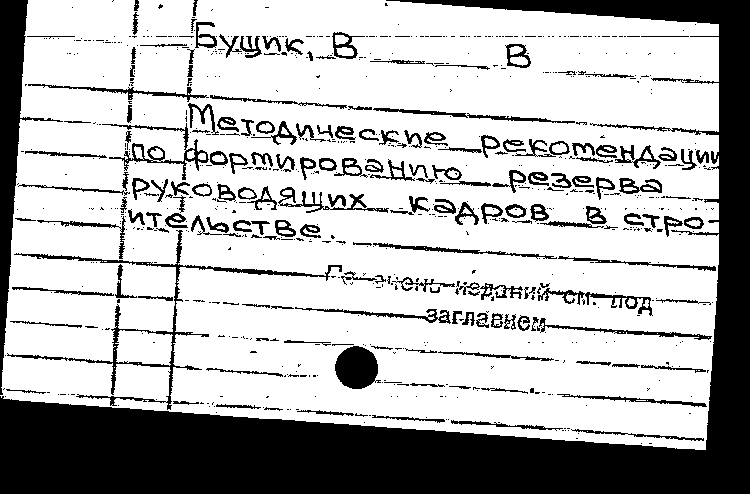 Бущик, В В
Методические рекомендации
по формированию резерва
руководящих кадров в стро-
ительстве.
Пе᠎речень изданий см. под
заглавием